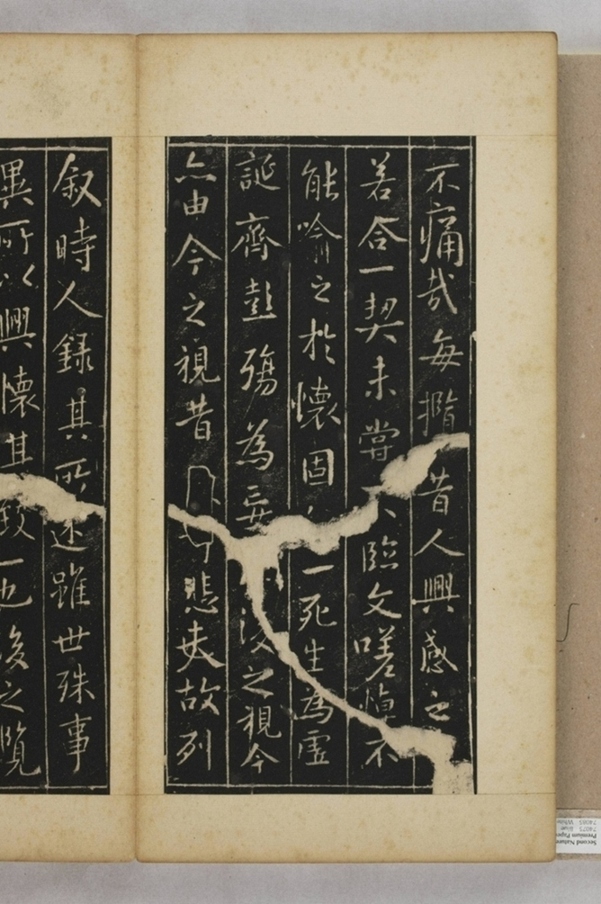 不痛哉每攬昔人興感之
若合一契未嘗臨文嗟悼不
能喻之於懷固一死生為虛
誕齊彭殤為妄後之視今
亦由今之視昔悲夫故列
叙時人錄其所述雖世殊事
異所以興懷其致一也後之覽
Second Nature